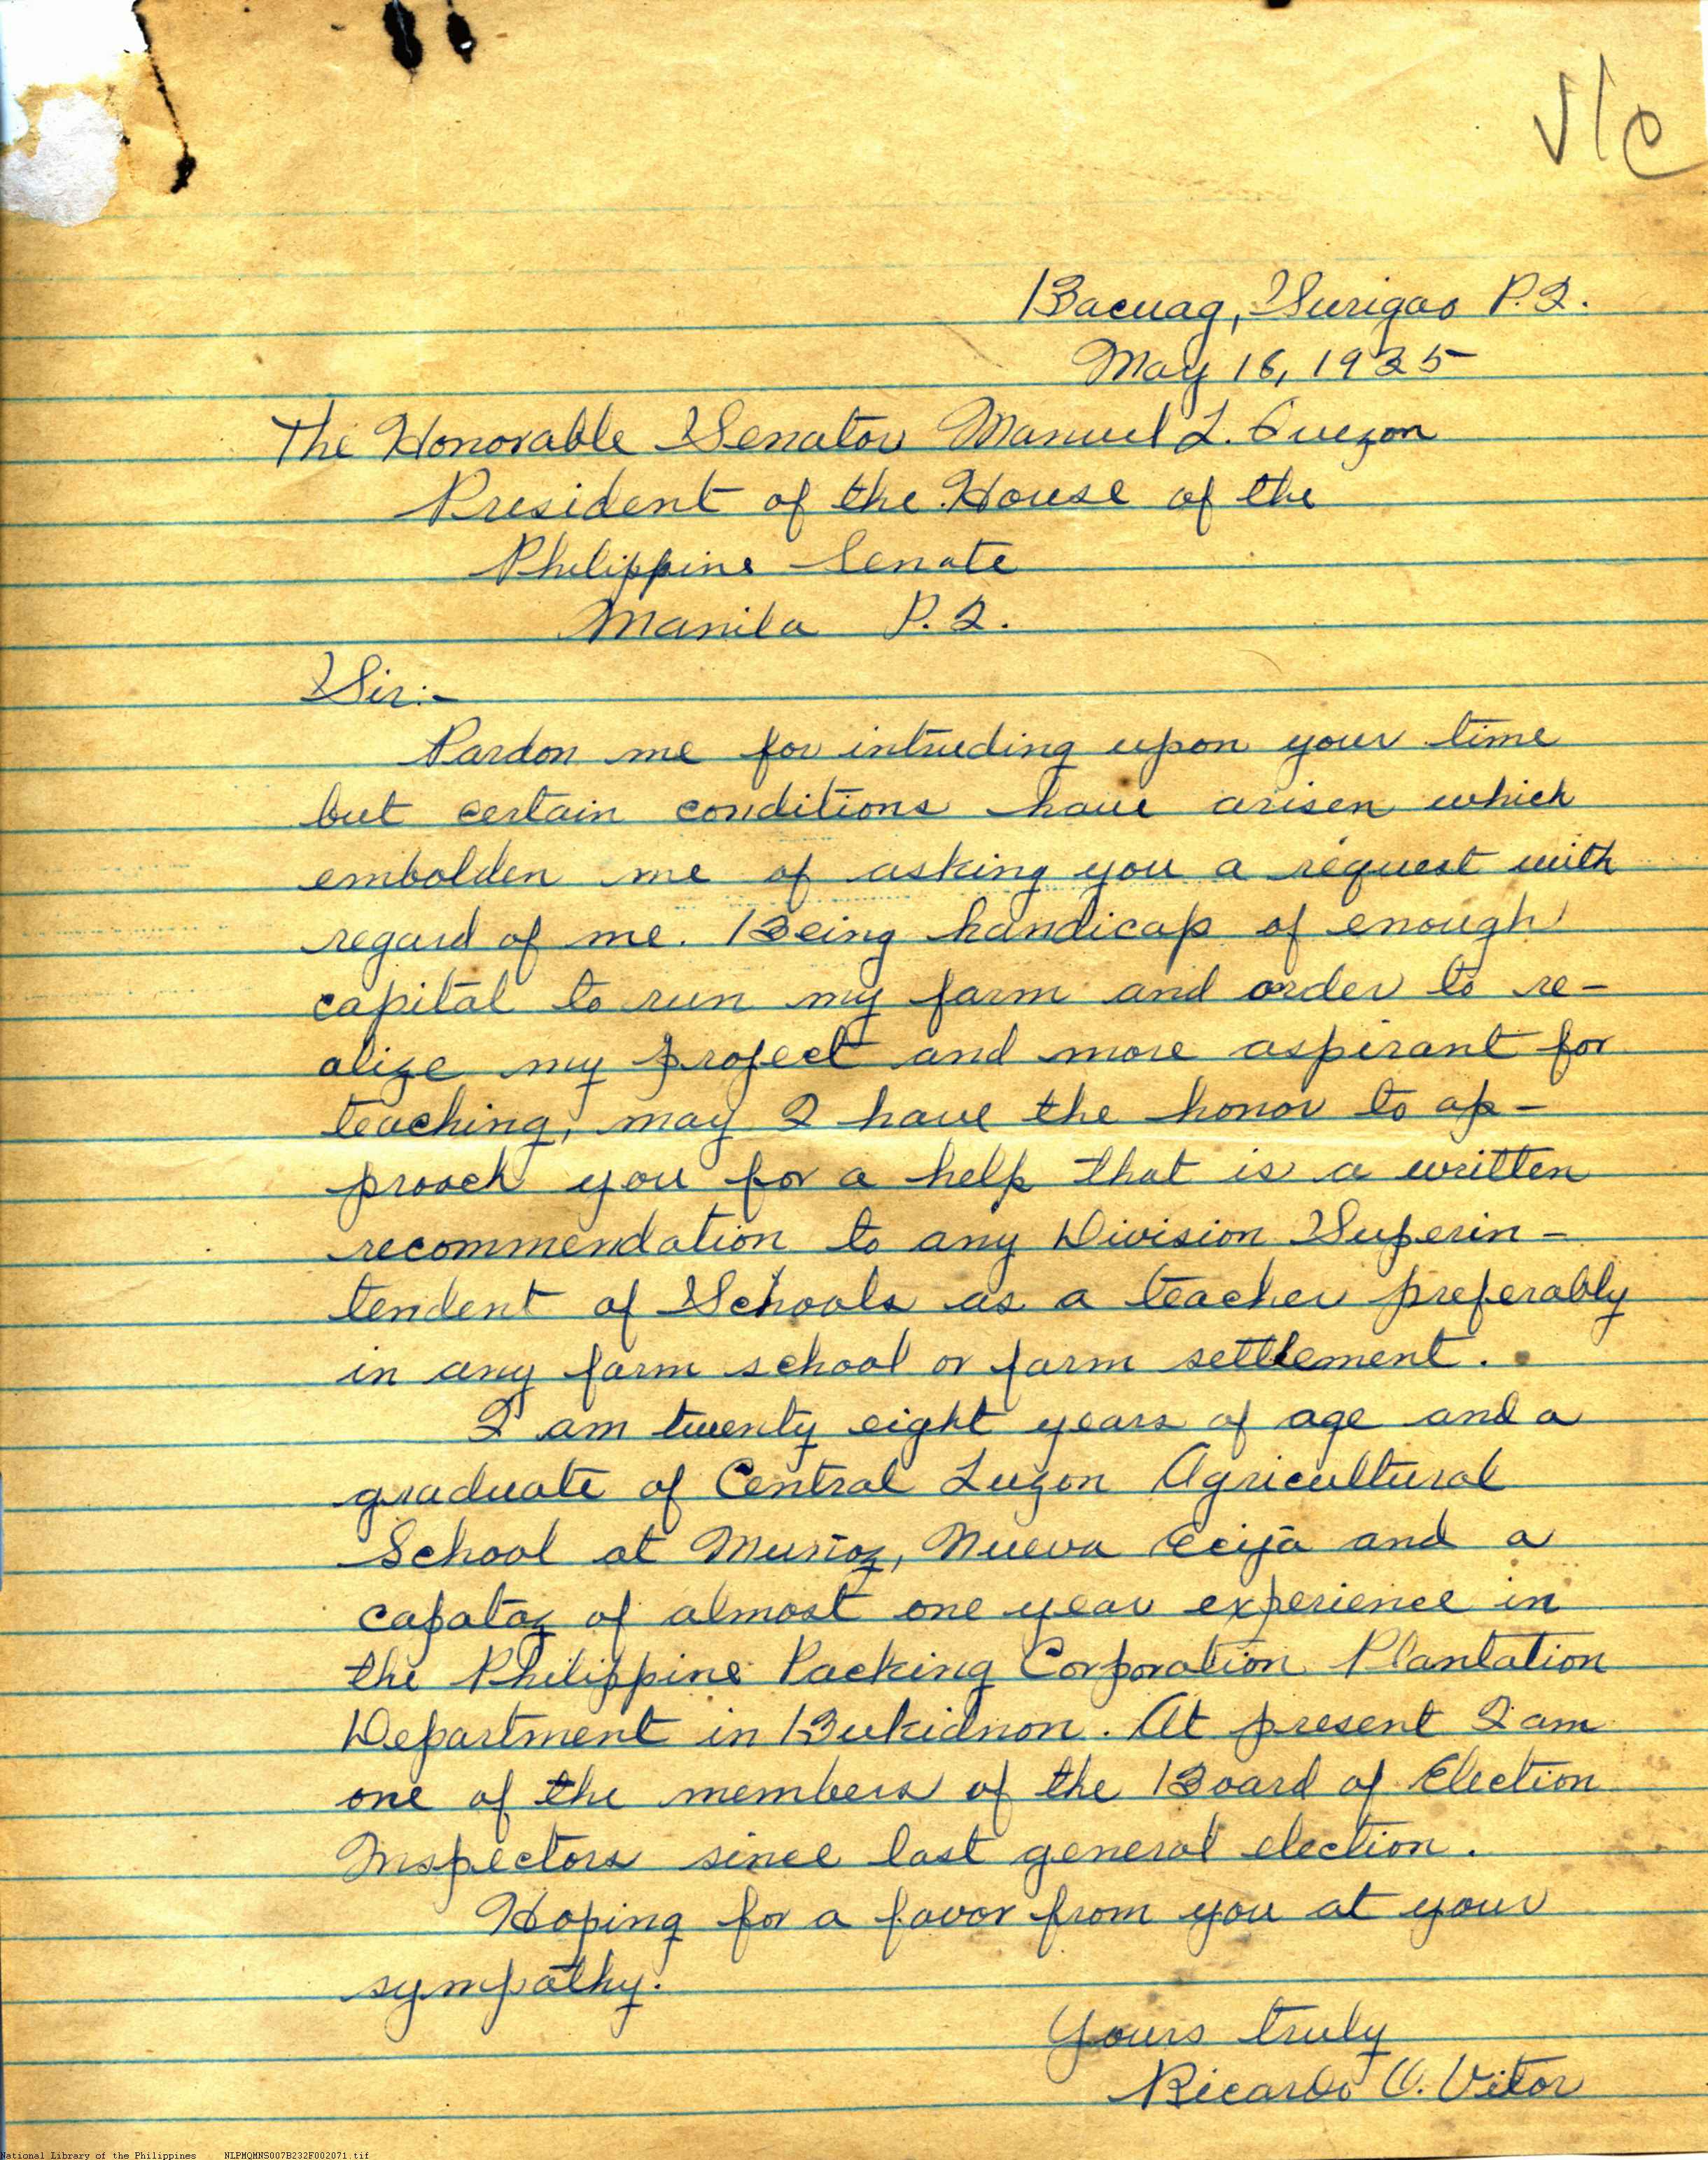 Bacuag, Surigao P.I.
May 16, 1935
The Honorable Senator Manuel L. Quezon
President of the House of the
Philippine Senate
Manila P.I.
Sir:-
Pardon me for intruding upon your time
but certain conditions have arisen which
embolden me of asking you a request with
regard of me. Being handicap of enough
capital to run my farm and order to re-
alize my project and more aspirant for
teaching, may I have the honor to ap-
proach you for a help that is a written
recommendation to any Division Superin-
tendent of Schools as a teacher preferably
in any farm school or farm settlement.
I am twenty eight years of age and a
graduate of Central Luzon Agricultural
School at Muñoz, Nueva Ecija and a
capataz of almost one year experience in
the Philippine Packing Corporation Plantation
Department in Bukidnon. At present I am
one of the members of the Board of Election
Inspectors since last general election.
Hoping for a favor from you at your
sympathy.
Yours truly
Ricardo O. Vitor
National Library of the Philippines NLPMQMNS007B232F002071.tif